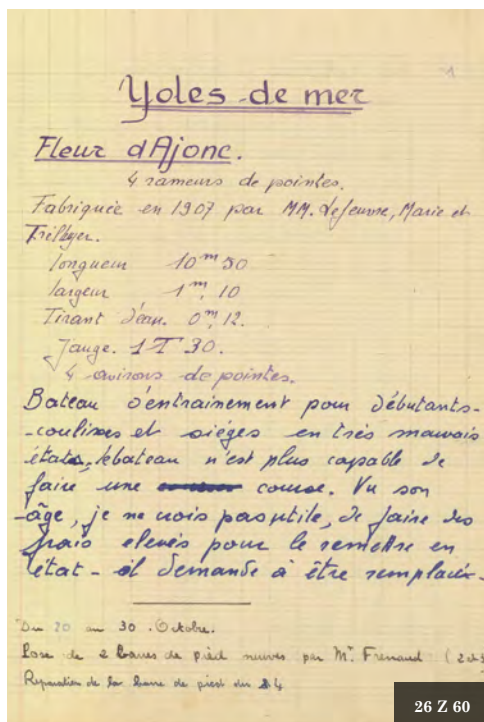 1
Yoles de mer
Fleur d'Ajonc.
4 rameurs de pointes.
Fabriquée en 1907 par MM. Lejeune, Marie et
longueur 10m 30
largeur 1m, 10
Tirant d'eau. 0m, 12.
Jauge. 1T 30.
4 avirons de pointes.
Bateau d'entrainement pour débutants-
-coulisses et sièges en très mauvais
états, le bateau n'est plus capable de
faire une course. Vu son
âge, je ne crois pas utile, de faire des
frais elevés pour le remettre en
état - il demande à être remplacé-
Du 20 au 30. Octobre.
Pose de 2 barres de pied neuves par Mr Frenaud
Reparation de la barre de pied du 4
26 Z 60